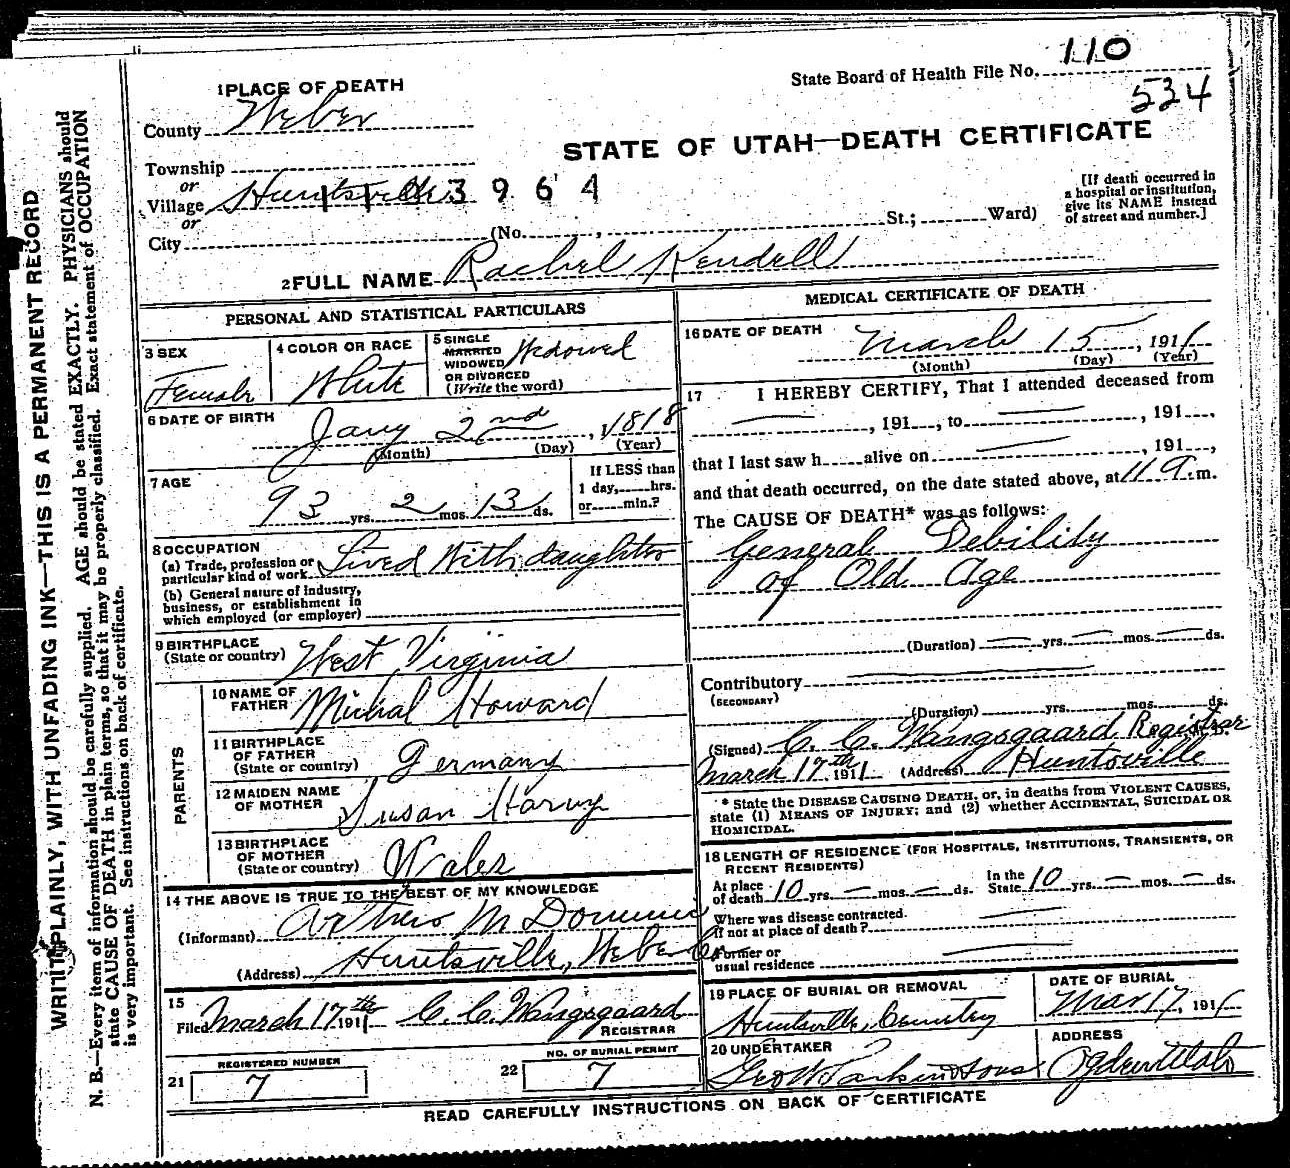 110
State Board of Health File No.
534
1 PLACE OF DEATH
County Weber
STATE OF UTAH—DEATH CERTIFICATE
Township
or
Village Huntsville 3 9 6 4
or
City (No. , St.; Ward)
[If death occurred in a hospital or institution, give its NAME instead of street and number.]
2 FULL NAME Rachel Kendell
PERSONAL AND STATISTICAL PARTICULARS
3 SEX Female
4 COLOR OR RACE White
5 SINGLE MARRIED WIDOWED OR DIVORCED (Write the word) Widowed
6 DATE OF BIRTH
Jany 2nd, 1818
(Month) (Day) (Year)
7 AGE
93 yrs. 2 mos. 13 ds.
If LESS than 1 day, hrs. or min.?
8 OCCUPATION
(a) Trade, profession or particular kind of work Lived With daughter
(b) General nature of Industry, business, or establishment in which employed (or employer)
9 BIRTHPLACE (State or country) West Virginia
PARENTS
10 NAME OF FATHER Michal Howard
11 BIRTHPLACE OF FATHER (State or country) Germany
12 MAIDEN NAME OF MOTHER Susan Harvy
13 BIRTHPLACE OF MOTHER (State or country) Wales
14 THE ABOVE IS TRUE TO THE BEST OF MY KNOWLEDGE
(Informant) M
(Address) Huntsville, Weber Co
15
Filed March 17th 1911 C. C. Wangsgaard
REGISTRAR
REGISTERED NUMBER
21 7
NO. OF BURIAL PERMIT
22 7
MEDICAL CERTIFICATE OF DEATH
16 DATE OF DEATH
March 15, 1911
(Month) (Day) (Year)
17 I HEREBY CERTIFY, That I attended deceased from
, 191 , to , 191 ,
that I last saw h alive on , 191 ,
and that death occurred, on the date stated above, at 11 a.m.
The CAUSE OF DEATH* was as follows:
General Debility
of Old Age
(Duration) yrs. mos. ds.
Contributory
(SECONDARY)
(Duration) yrs. mos. ds.
(Signed) C. C. Wangsgaard Registrar
March 17th 1911 (Address) Huntsville
* State the DISEASE CAUSING DEATH, or, in deaths from VIOLENT CAUSES,
state (1) MEANS OF INJURY; and (2) whether ACCIDENTAL, SUICIDAL OR
HOMICIDAL.
18 LENGTH OF RESIDENCE (FOR HOSPITALS, INSTITUTIONS, TRANSIENTS, OR
RECENT RESIDENTS)
At place of death 10 yrs. mos. ds. In the State 10 yrs. mos. ds.
Where was disease contracted,
if not at place of death?
Former or
usual residence
19 PLACE OF BURIAL OR REMOVAL
Huntsville, Cemetry
DATE OF BURIAL
Mar 17, 1911
20 UNDERTAKER
Geo W. Parkin & Sons
ADDRESS
Ogden Utah
READ CAREFULLY INSTRUCTIONS ON BACK OF CERTIFICATE
WRITE PLAINLY, WITH UNFADING INK—THIS IS A PERMANENT RECORD
N. B.—Every item of information should be carefully supplied. AGE should be stated EXACTLY. PHYSICIANS should
state CAUSE OF DEATH in plain terms, so that it may be properly classified. Exact statement of OCCUPATION
is very important. See instructions on back of certificate.